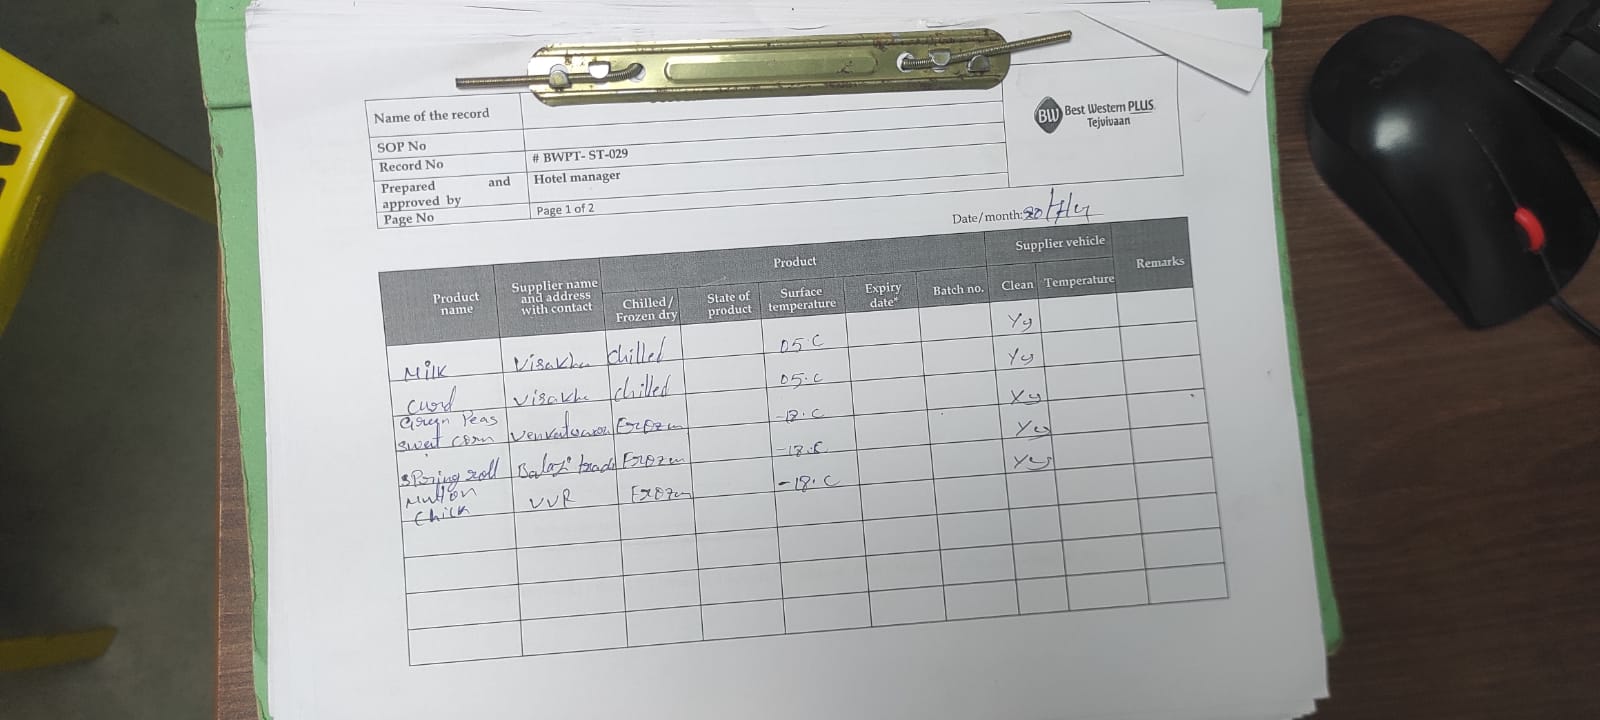 Name of the record
SOP No
Record No # BWPT- ST-029
Prepared and approved by Hotel manager
Page No Page 1 of 2
BW Best Western PLUS
Tejvivaan
Date/month: 20/7/24
Product name Supplier name and address with contact Product Supplier vehicle Remarks
Chilled/ Frozen dry State of product Surface temperature Expiry date* Batch no. Clean Temperature
Milk Visakha chilled 05°C Yes
Curd Visakha chilled 05°C Yes
Green Peas
Sweet corn Frozen -18°C Yes
Spring roll Balaji Frozen -18°C Yes
Mutton
Chick VVR Frozen -18°C Yes